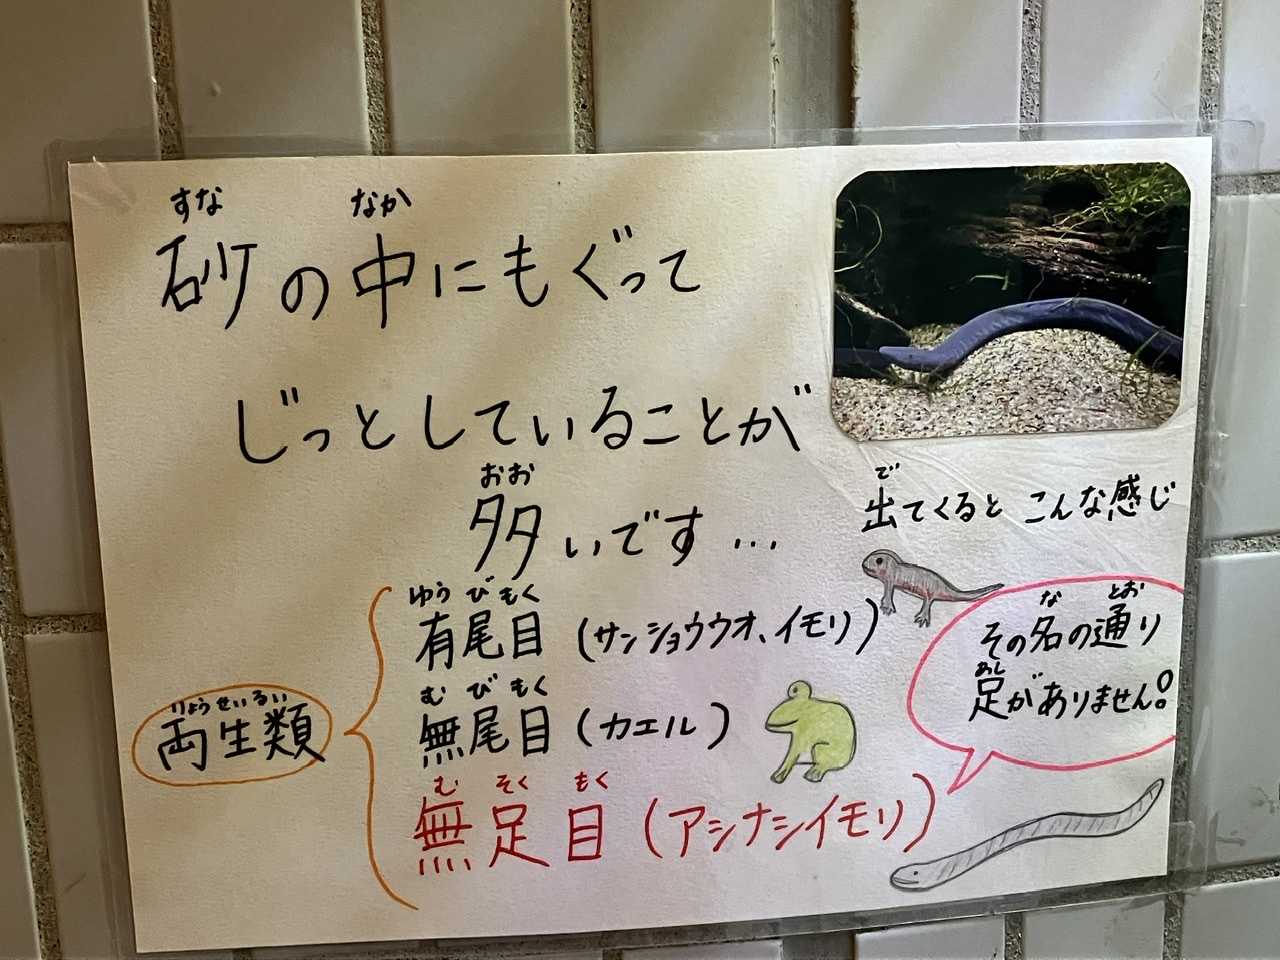 すな なか
砂の中にもぐって
じっとしていることが
おお
多いです…
で
出てくると こんな感じ
りょうせいるい
両生類
ゆう び もく
有尾目(サンショウウオ、イモリ)
む び もく
無尾目(カエル)
む そく もく
無足目(アシナシイモリ)
な とお
その名の通り
あし
足がありません!